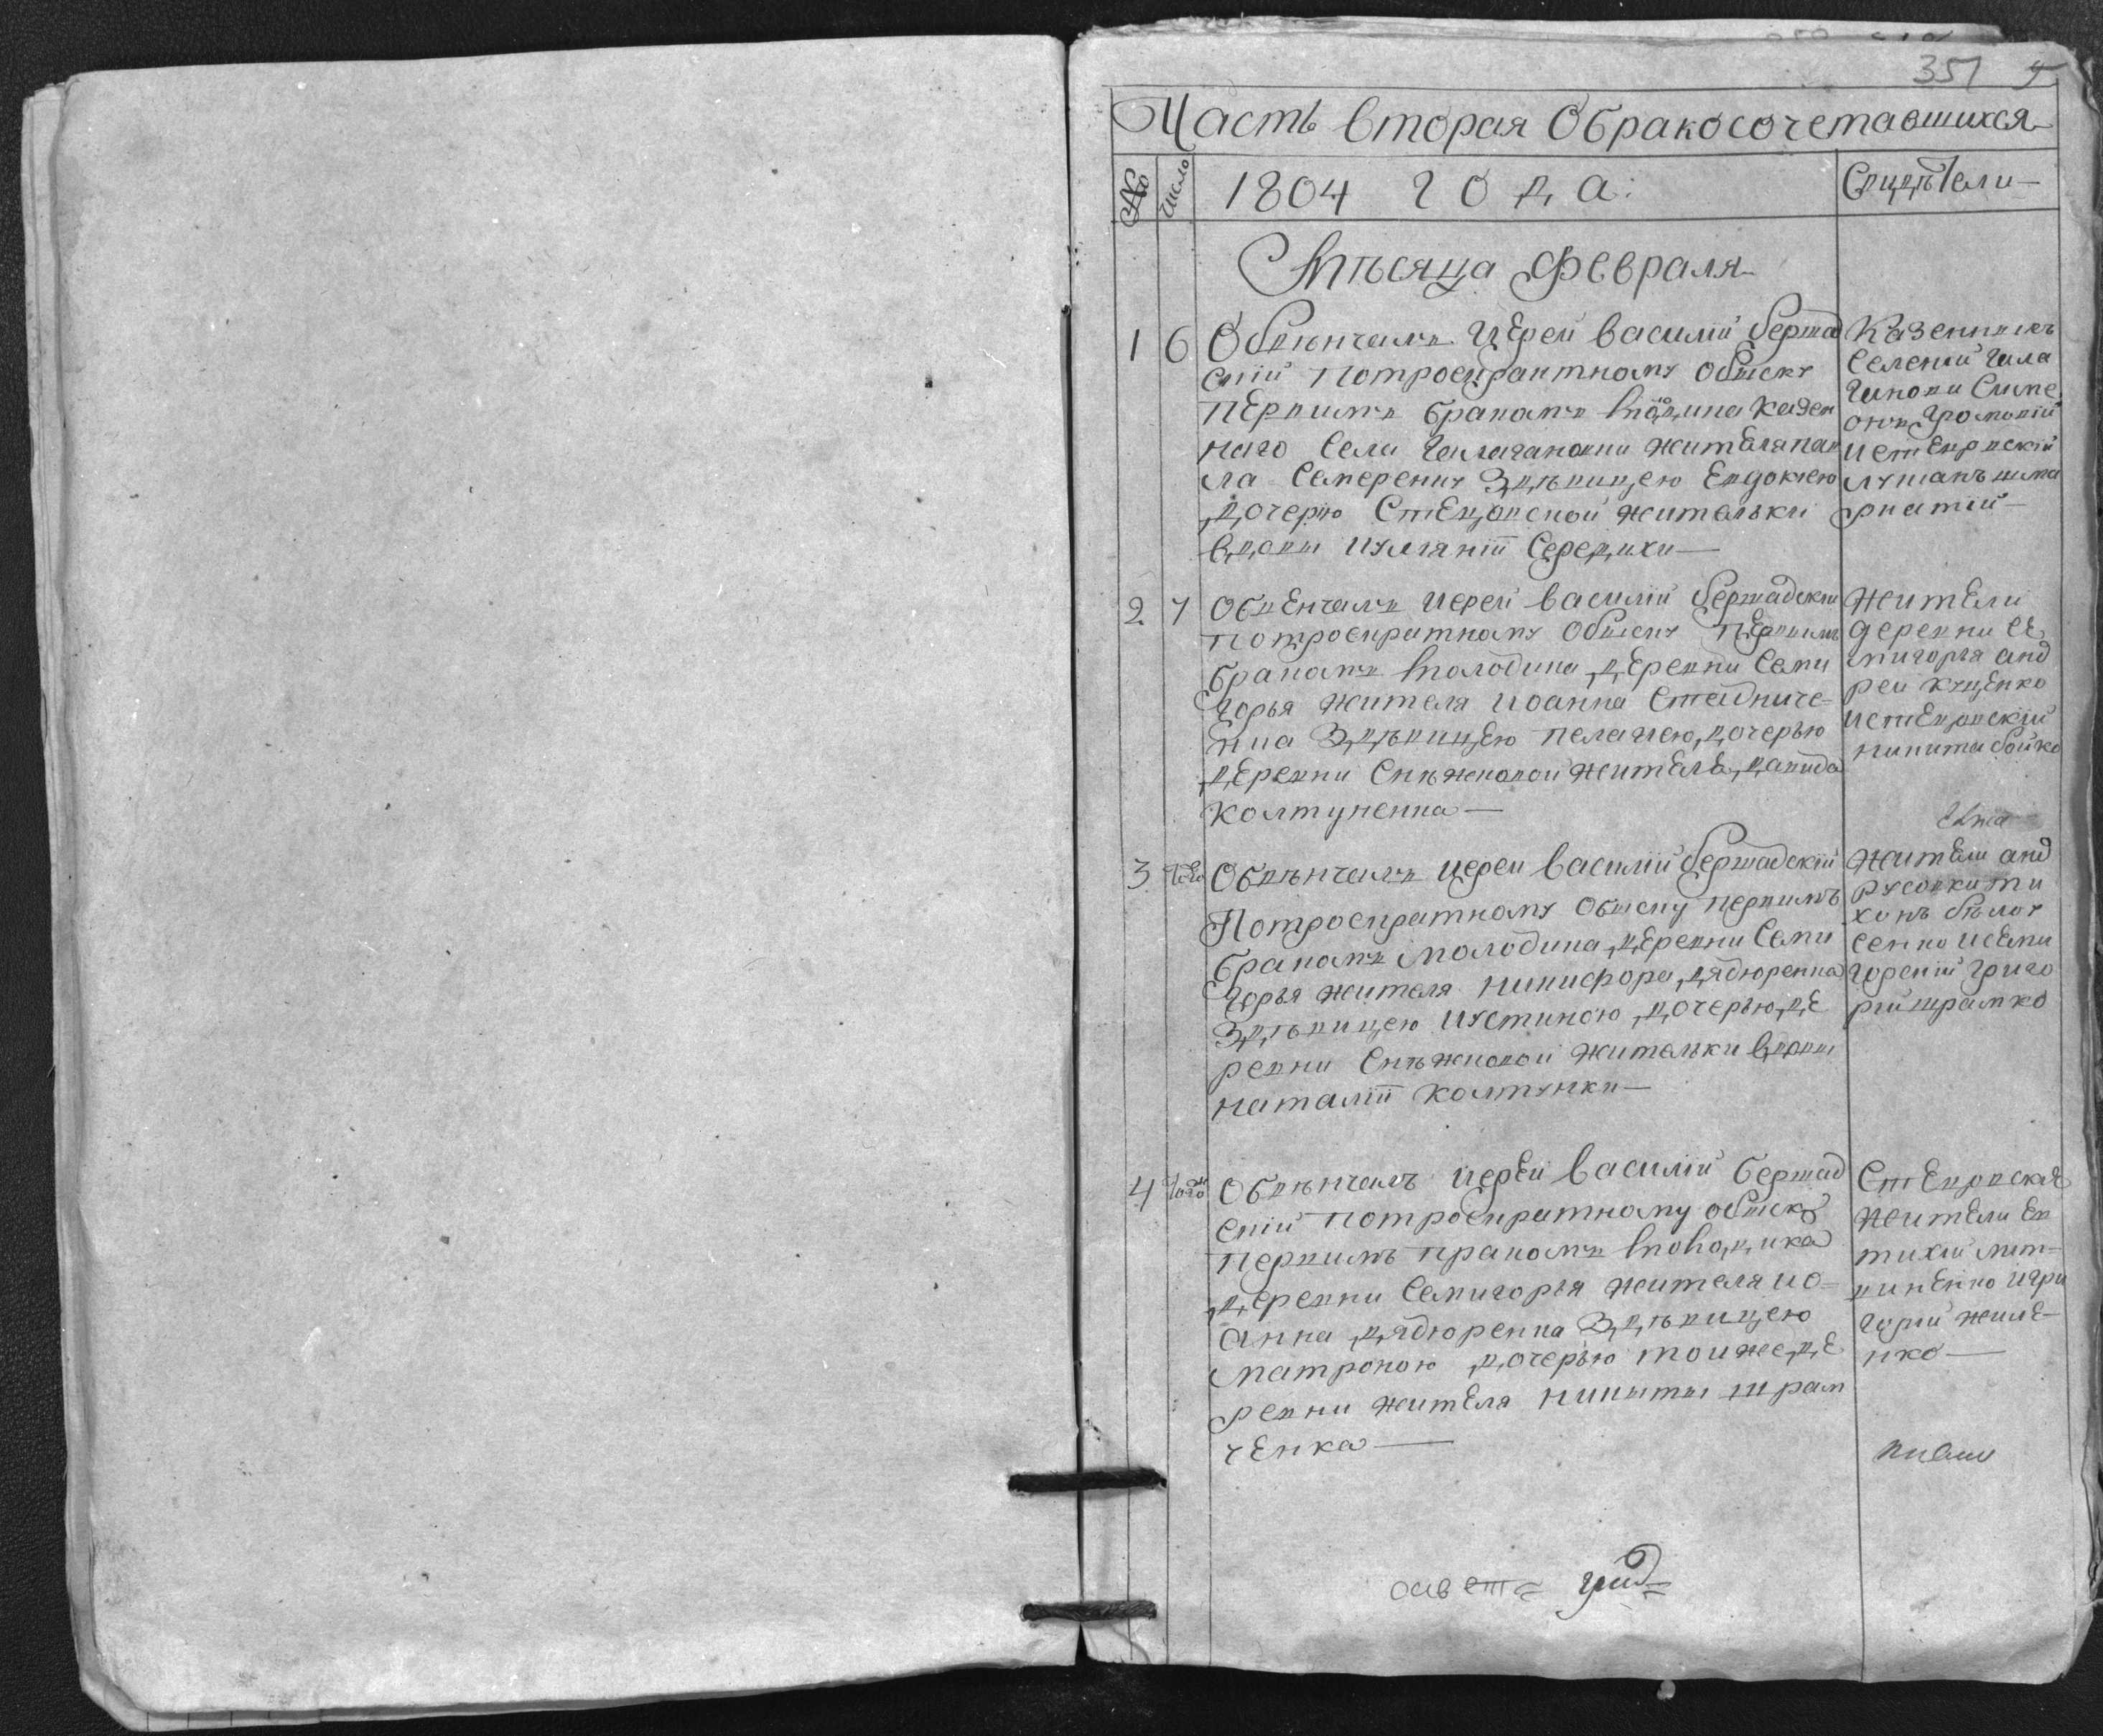 351
Часть вторая О бракосочетавшихся
№ Число 1804 года: Свидѣтели
Мѣсяца Февраля
1 6 Обвѣнчалъ Иерей Василий Бершад
ский По троекратному обыску
Первимъ бракомъ молодика Казен
наго Села Гилачановки жителя Пав
ла Семеренку Здѣвицею Евдокиею
дочерию Стецовской жительки
вдовы Иулианіи Середихи
Казенныхъ
Селений Гила
чановки Симе
онъ Громовий
и Стецовский
Лукианъ Шма
рнатий
2 7 Обвенчалъ Иерей Василий Бершадский
По троекратному Обыску Первимъ
бракомъ молодика деревни Семи
горья жителя Иоанна Стадниче-
нка Здѣвицею Пелагиею дочерью
деревни Снѣжковой жителя Давида
Колтуненка
Жители
деревни Се
мигорья Анд
рей Куценко
и Стецовский
Никита Бойко
3 Того Обвѣнчалъ Иерей Василий Бершадский
По троекратному Обыску Первимъ
бракомъ молодика деревни Семи
горья жителя Никифора Дядюренка
Здѣвицею Иустиною дочерью де
ревни Снѣжковой жительки вдовы
Наталіи Колтунки
Жители Анд
русовки Ти
хонъ Бѣлоу
сенко и Семи
горский Григо
рий Шрамко
4 Того Обвѣнчалъ Иерей Василий Бершад
ский По троекратному обыску
Первимъ браком молодика
деревни Семигорья жителя Ио-
анна Дядюренка Здѣвицею
Матроною дочерью тойже де
ревни жителя Никиты Шрам
ченка
Стецовская
Жители Ев
тихий Лит-
виненко и Гри
горий Жиле-
нко